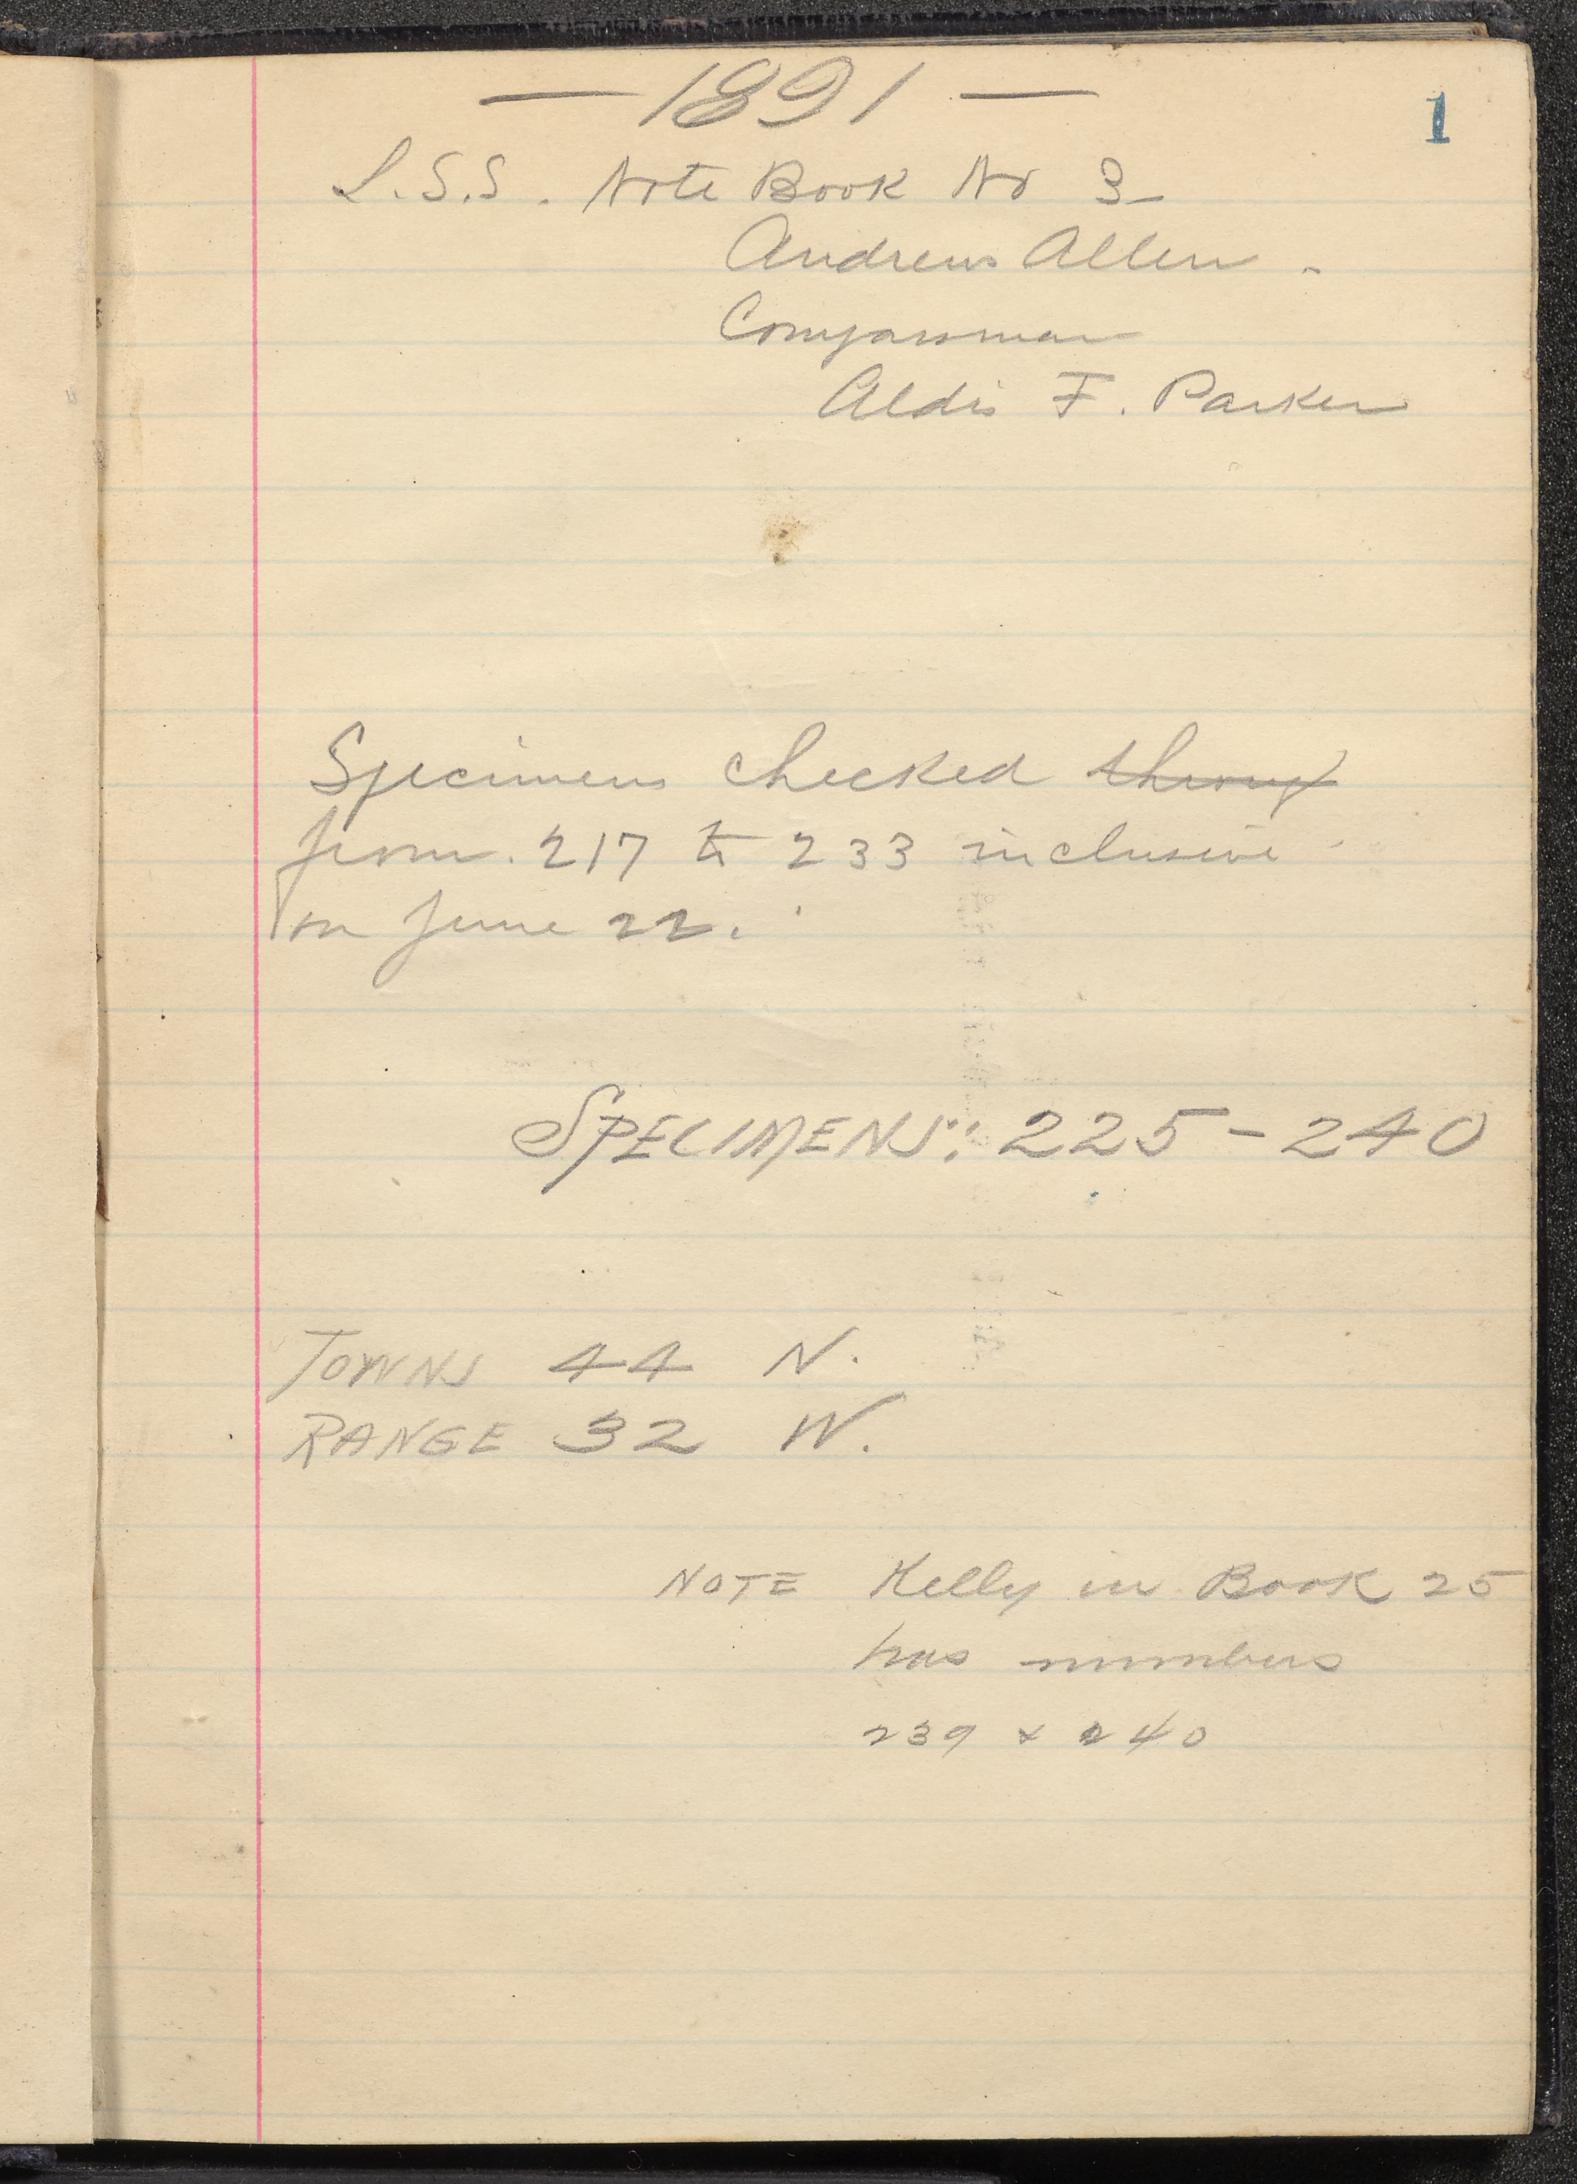 — 1891 —
1
L.S.S. Note Book No 3
Andrews Allen.
Compassman
Aldis F. Parker
Specimens checked throug
from 217 to 233 inclusive
on June 22.
SPECIMENS: 225-240
TOWNS 44 N.
RANGE 32 W.
NOTE Kelly in Book 25
has numbers
239 & 240